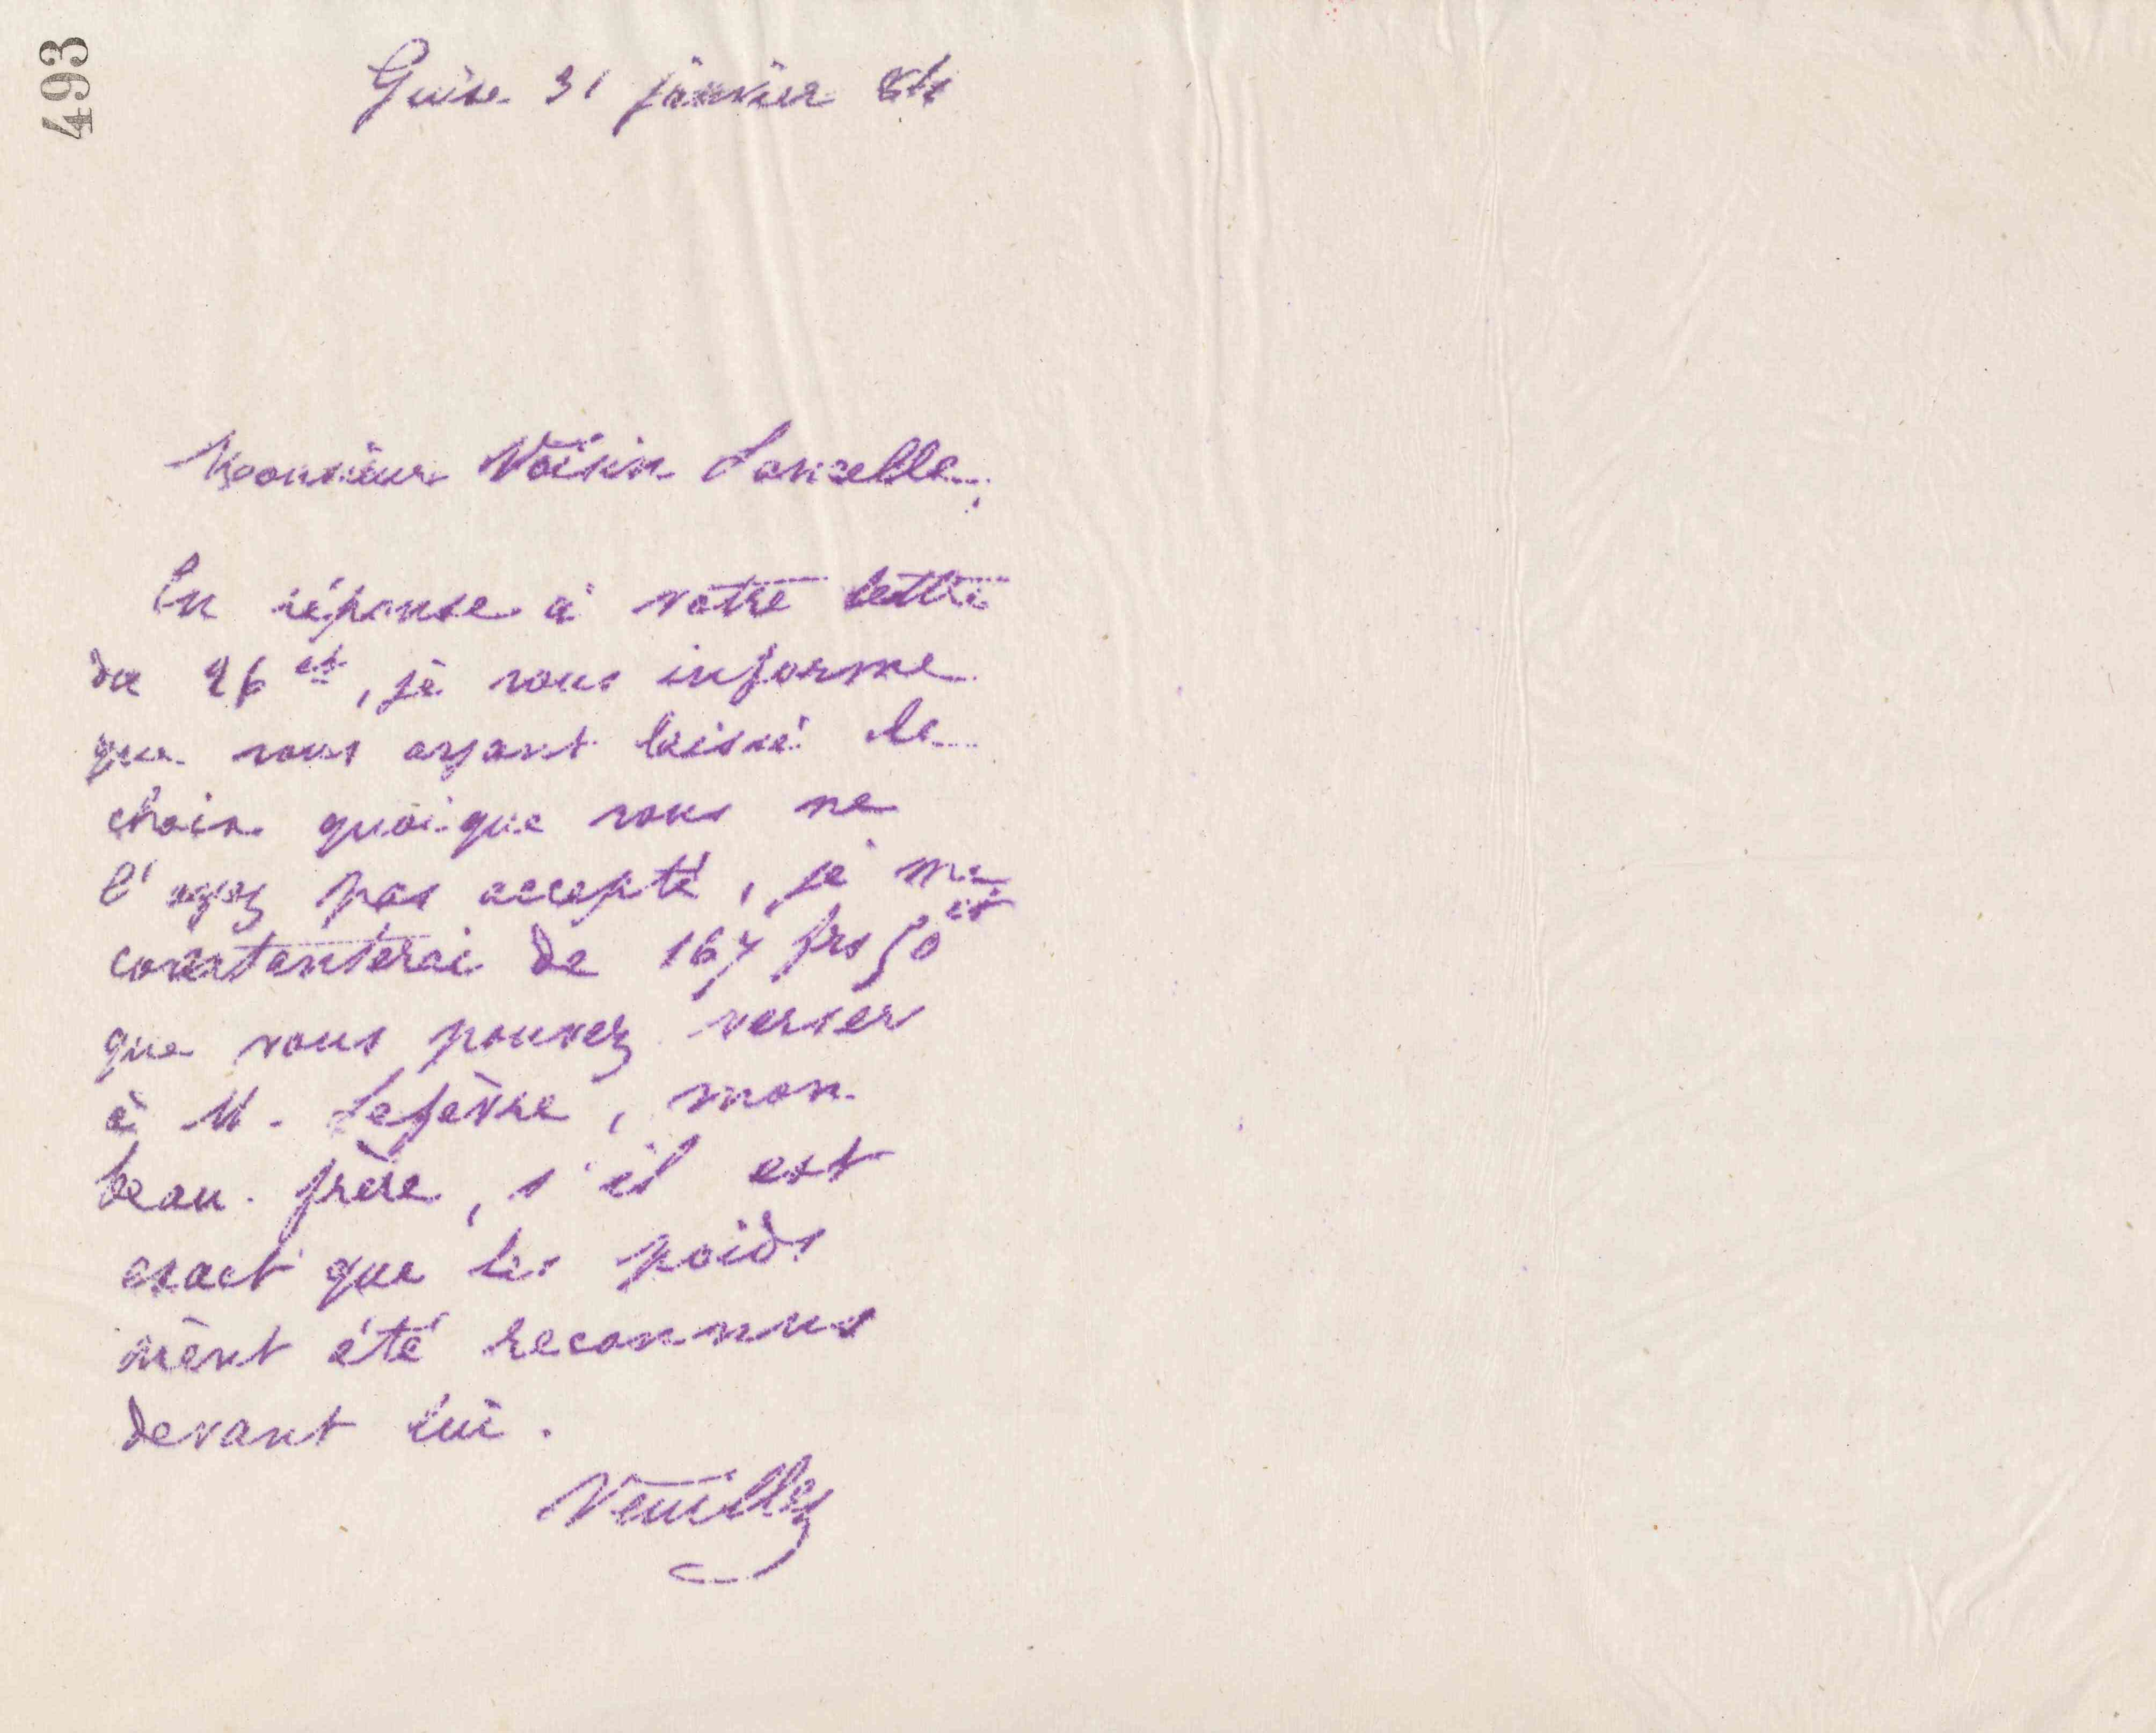 493
Guise 31 janvier 84
Monsieur Voisin Lancelle,
En réponse à votre lettre
du 26 ct, je vous informe
que vous ayant laissé le
choix quoique vous ne
l'ayez pas accepté, je me
contenterai de 167 frs 50 ct
que vous pouvez verser
à M. Lefèvre, mon
beau-frère, s'il est
exact que les poids
aient été reconnus
devant lui.
Veuillez